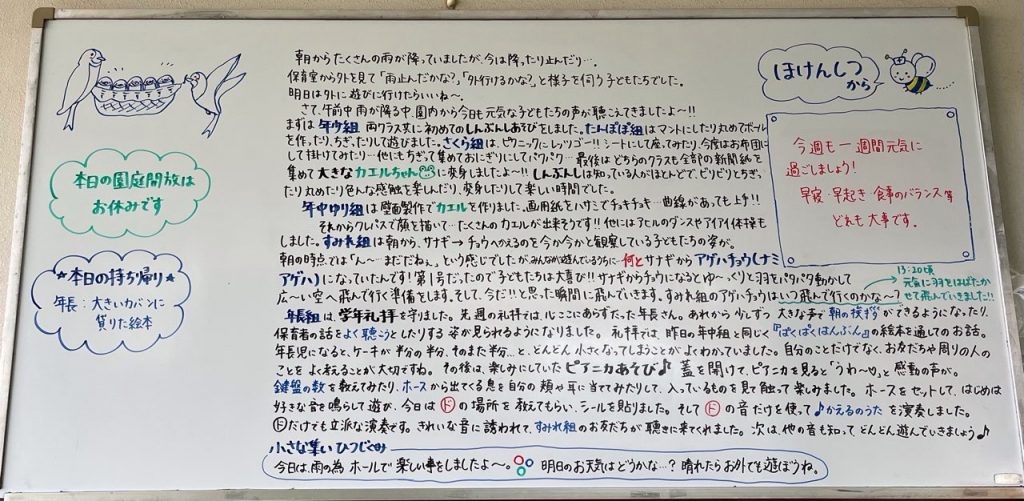 朝からたくさんの雨が降っていましたが、今は降ったり止んだり…。
保育室から外を見て「雨止んだかな?」「外行けるかな?」と様子を伺う子どもたちでした。
明日は外に遊びに行けたらいいね〜。
さて、午前中雨が降る中、園内から今日も元気な子どもたちの声が聴こえてきましたよ〜!!
まずは年少組 両クラス共に初めてのしんぶんしあそびをしました。たんぽぽ組はマントにしたり丸めてボール
を作ったり、ちぎったりして遊びました。さくら組は、ピクニックにレッツゴー!!シートにして座ってみたり、今度はお布団に
して掛けてみたり…他にもちぎって集めておにぎりにしてパクパク…最後はどちらのクラスも全部の新聞紙を
集めて大きなカエルちゃんに変身しましたよ〜!!しんぶんしは知っている人がほとんどで、ビリビリとちぎっ
たり丸めたり色んな感触を楽しんだり、変身したりして楽しい時間でした。
年中ゆり組は壁面製作でカエルを作りました。画用紙をハサミでチョキチョキ…曲線があっても上手!!
それからクレパスで顔を描いて…たくさんのカエルが出来そうです!!他にはアヒルのダンスやアイアイ体操も
しました。すみれ組は朝から、サナギ→チョウへかえるのを今か今かと観察している子どもたちの姿が。
朝の時点では「ん〜まだだねぇ」という感じでしたが、みんなが遊んでいるうちに…何とサナギからアゲハチョウ(ナミ
アゲハ)になっていたんです!第1号だったので子どもたちは大喜び!!サナギからチョウになるとゆ〜っくりと羽をパタパタ動かして
広〜い空へ飛んで行く準備をします。そして、今だ!!と思った瞬間に飛んでいきます。すみれ組のアゲハチョウはいつ飛んで行くのかな〜?
年長組は、学年礼拝を守りました。先週の礼拝では、心ここにあらずだった年長さん。あれから少しずつ大きな声で朝の挨拶ができるようになったり、
保育者の話をよく聴こうとしたりする姿が見られるようになりました。礼拝では、昨日の年中組と同じく『ぱくぱくはんぶん』の絵本を通してのお話。
年長児になると、ケーキが半分の半分、そのまた半分…と、どんどん小さくなってしまうことがよくわかっていました。自分のことだけでなく、お友だちや周りの人の
ことをよく考えることが大切ですね。その後は、楽しみにしていたピアニカあそび♪蓋を開けて、ピアニカを見ると「うわ〜っ」と感動の声が。
鍵盤の数を数えてみたり、ホースから出てくる息を自分の頬や耳に当てみたりして、入っているものを見て触って楽しみました。ホースをセットして、はじめは
好きな音を鳴らして遊び、今日はドの場所を教えてもらい、シールを貼りました。そしてドの音だけを使って♪かえるのうたを演奏しました。
ドだけでも立派な演奏です。きれいな音に誘われて、すみれ組のお友だちが聴きに来てくれました。次は、他の音も知ってどんどん遊んでいきましょう♪
小さな集い ひつじぐみ
今日は、雨の為ホールで楽しい事をしましたよ〜。明日のお天気はどうかな…?晴れたらお外でも遊ぼうね。
本日の園庭開放は
お休みです
★本日の持ち帰り★
年長:大きいカバンに
貸りた絵本
ほけんしつ
から
今週も一週間元気に
過ごしましょう!
早寝・早起き・食事のバランス等
どれも大事です。
13:20頃
元気に羽をはばたか
せて飛んでいきました!!